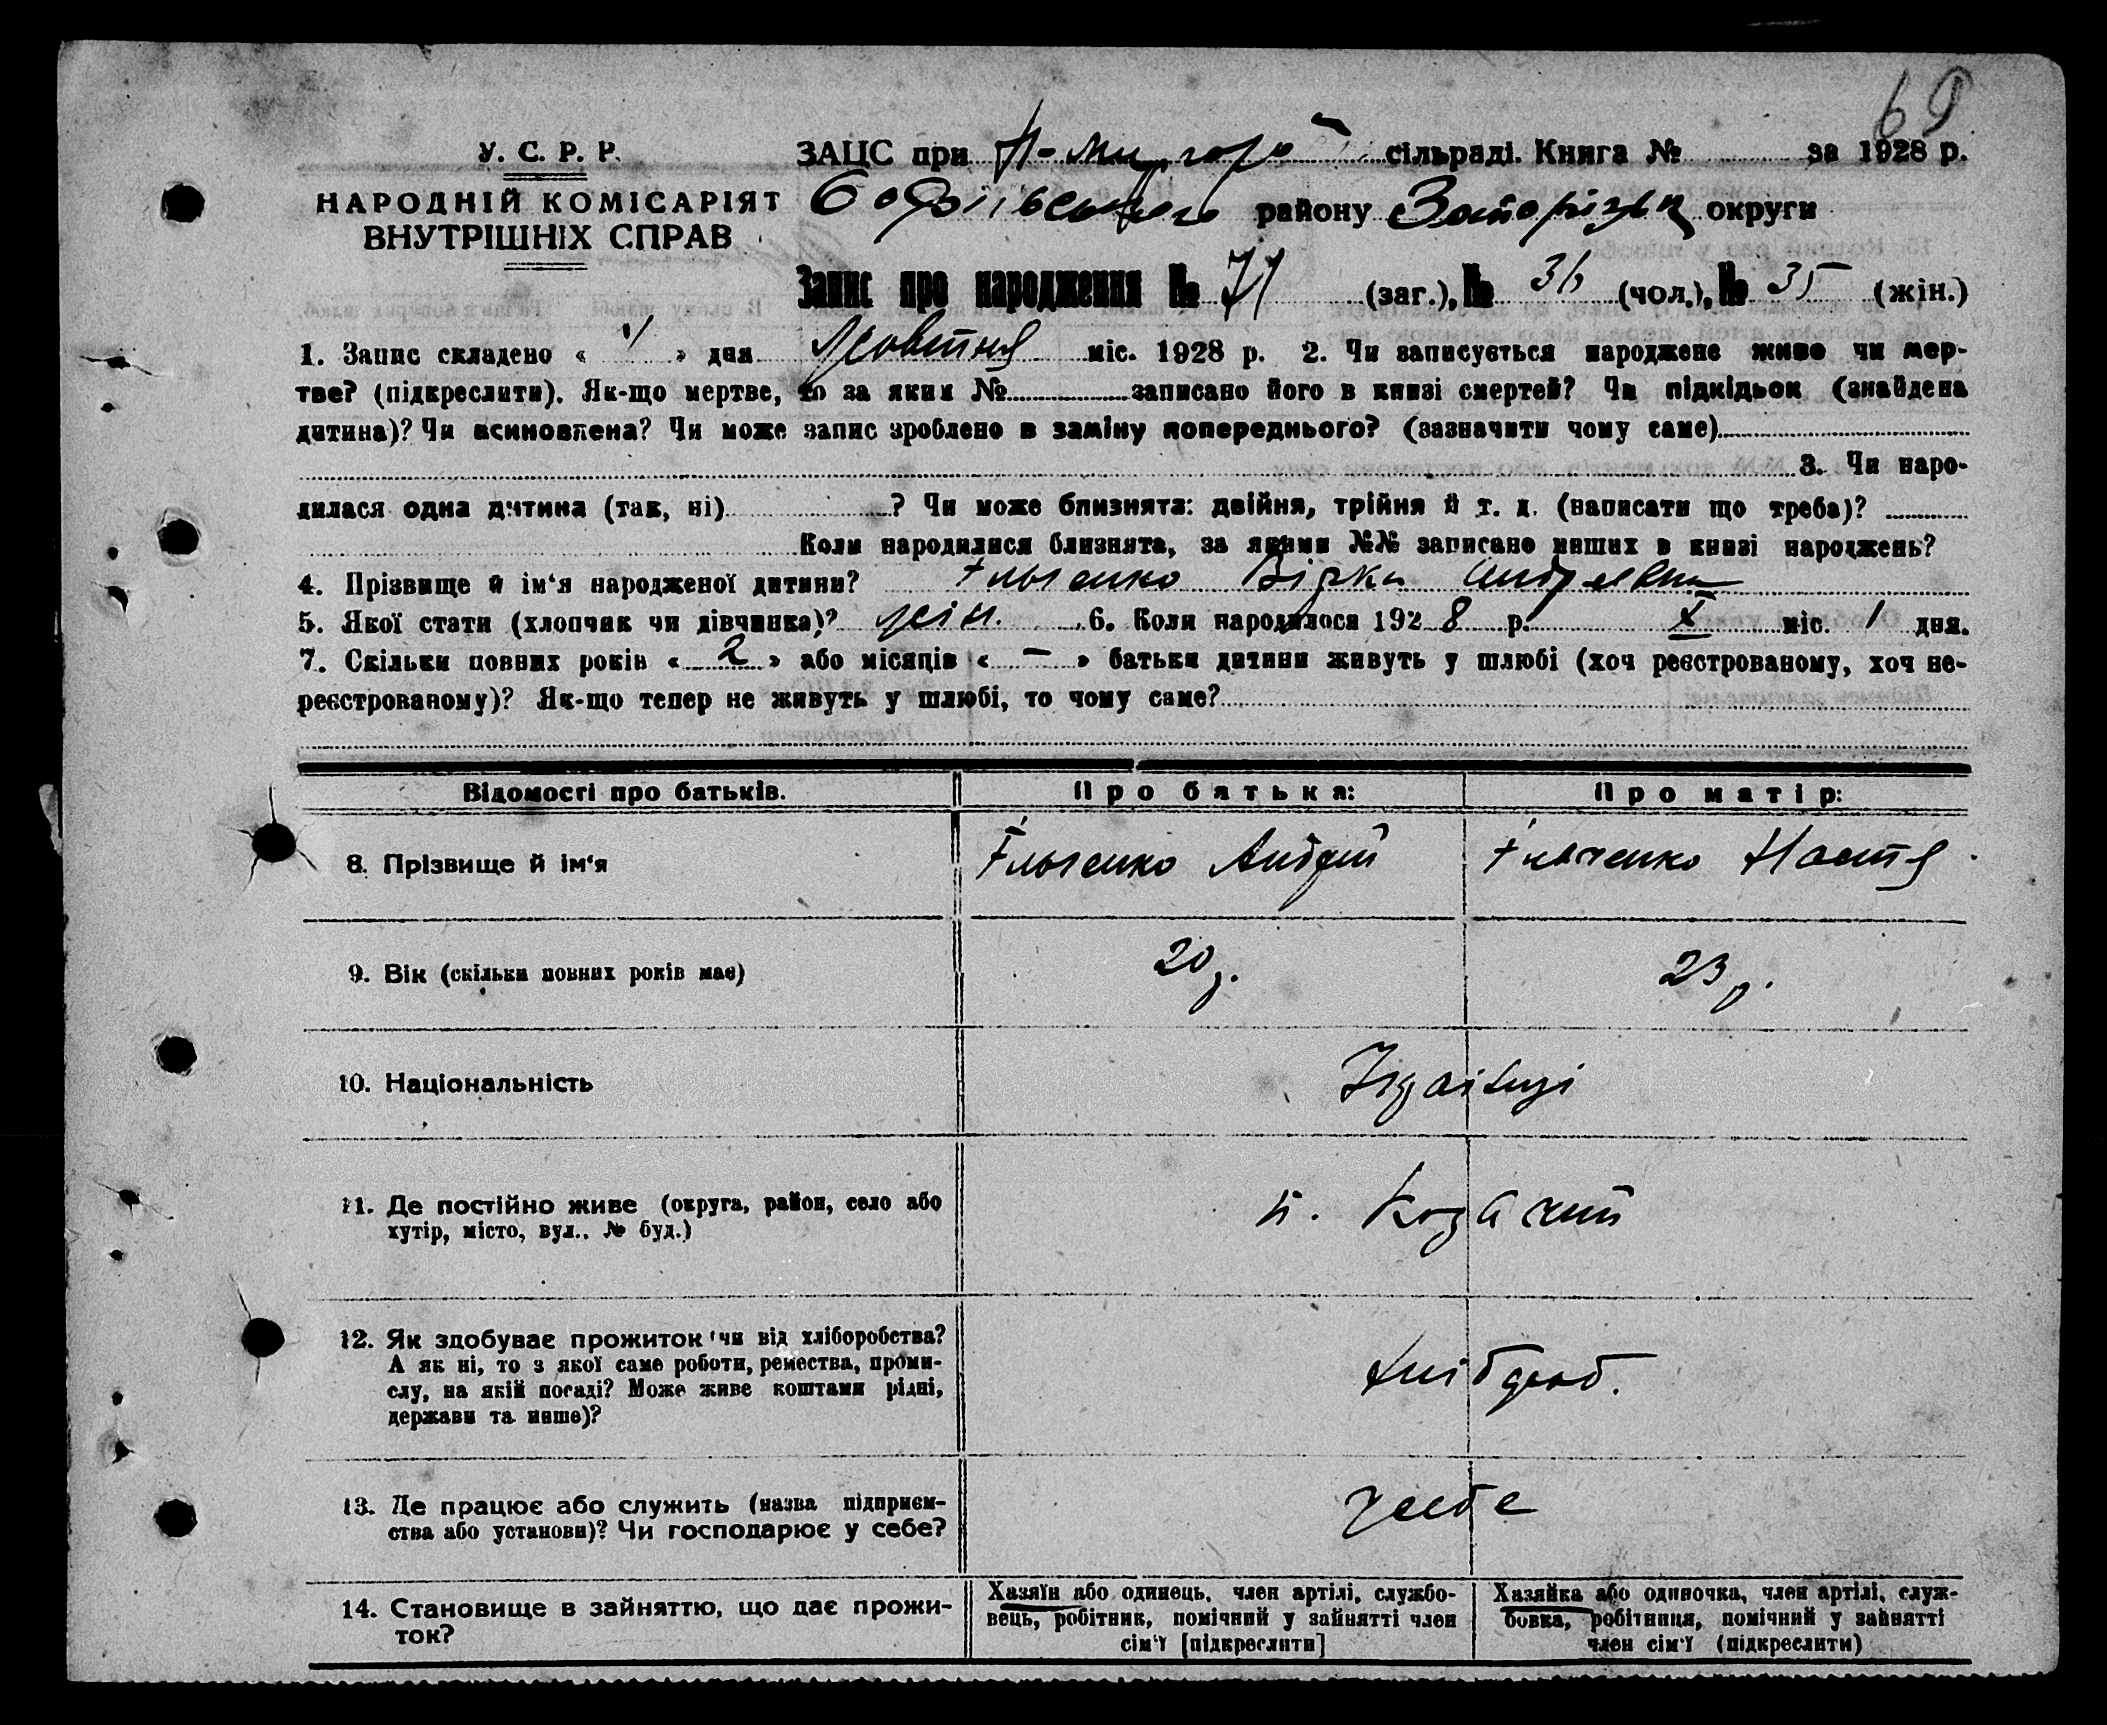 69
У. С. Р. Р.
НАРОДНІЙ КОМІСАРІЯТ
ВНУТРІШНІХ СПРАВ
ЗАЦС при сільраді. Книга № за 1928 р.
району округи
Запис про народження № 71 (заг.), № 36 (чол.), № 35 (жін.)
1. Запис складено « » дня жовтня міс. 1928 р. 2. Чи записується народжене живе чи мер-
тве? (підкреслити). Як-що мертве, то за яким № записано його в книзі смертей? Чи підкідьок (знайдена
дитина)? Чи всиновлена? Чи може запис зроблено в заміну попереднього? (зазначити чому саме)
3. Чи наро-
дилася одна дитина (так, ні) ? Чи може близнята: двійня, трійня й т. д. (написати що треба)?
Коли народилися близнята, за якими №№ записано инших в книзі народжень?
4. Прізвище й ім'я народженої дитини? Ільченко Вірка Андреевна
5. Якої стати (хлопчик чи дівчинка)? жін. 6. Коли народилося 1928 р. X міс. 1 дня.
7. Скільки повних років « 2 » або місяців « — » батьки дитини живуть у шлюбі (хоч реєстрованому, хоч не-
реєстрованому)? Як-що тепер не живуть у шлюбі, то чому саме?
Відомості про батьків. Про батька: Про матір:
8. Прізвище й ім'я Ільченко Андрій Ільченко Настя
9. Вік (скільки повних років має) 20 р. 23 р.
10. Національність Українці
11. Де постійно живе (округа, район, село або
хутір, місто, вул., № буд.)
х. Козачий
12. Як здобуває прожиток чи від хліборобства?
А як ні, то з якої саме роботи, ремества, проми-
слу, на якій посаді? Може живе коштами рідні,
держави та инше)?
хлібороб.
13. Де працює або служить (назва підприєм-
ства або установи)? Чи господарює у себе?
у себе
14. Становище в зайняттю, що дає прожи-
ток?
Хазяїн або одинець, член артілі, службо-
вець, робітник, помічний у зайнятті член
сім'ї [підкреслити]
Хазяйка або одиночка, член артілі, служ-
бовка, робітниця, помічний у зайнятті
член сім'ї (підкреслити)